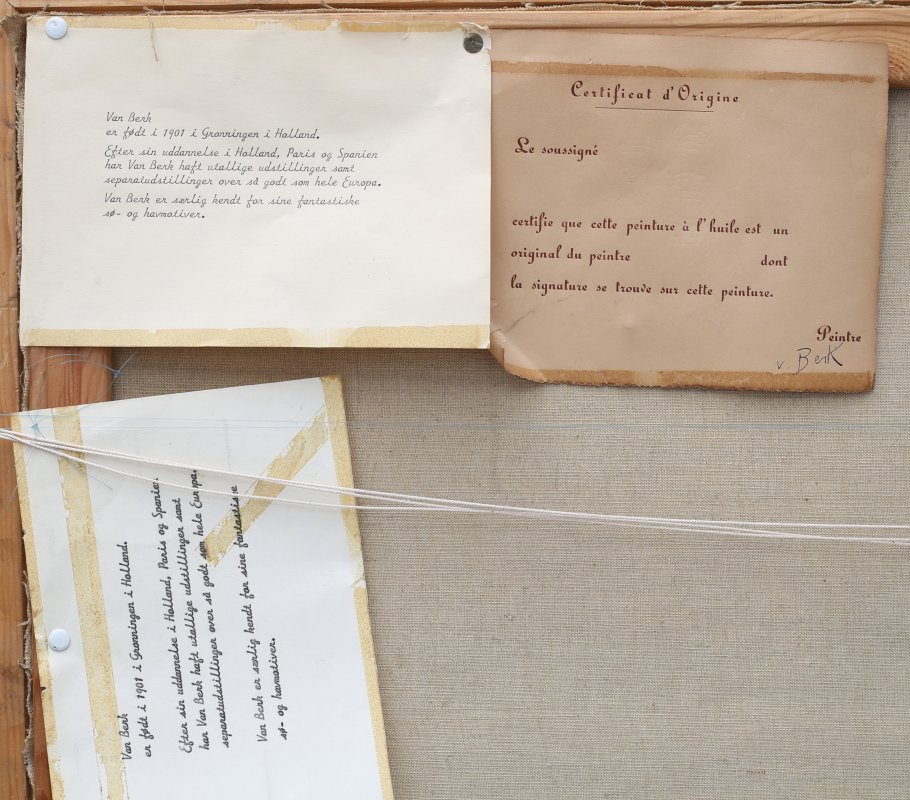 Van Berk
er født i 1901 i Grønningen i Holland.
Efter sin uddannelse i Holland, Paris og Spanien
har Van Berk haft utallige udstillinger samt
separatudstillinger over så godt som hele Europa.
Van Berk er særlig kendt for sine fantastiske
sø- og havmotiver.
Certificat d'Origine
Le soussigné
certifie que cette peinture à l'huile est un
original du peintre dont
la signature se trouve sur cette peinture.
Peintre
v. Berk
Van Berk
er født i 1901 i Grønningen i Holland.
Efter sin uddannelse i Holland, Paris og Spanien
har Van Berk haft utallige udstillinger samt
separatudstillinger over så godt som hele Europa.
Van Berk er særlig kendt for sine fantastiske
sø- og havmotiver.